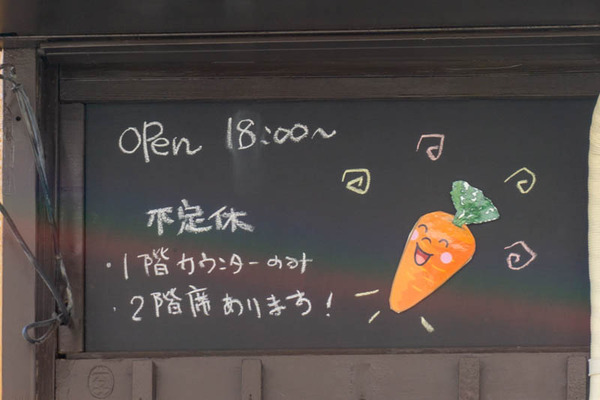 open 18:00~
不定休
・1階カウンターのみ
・2階席あります!